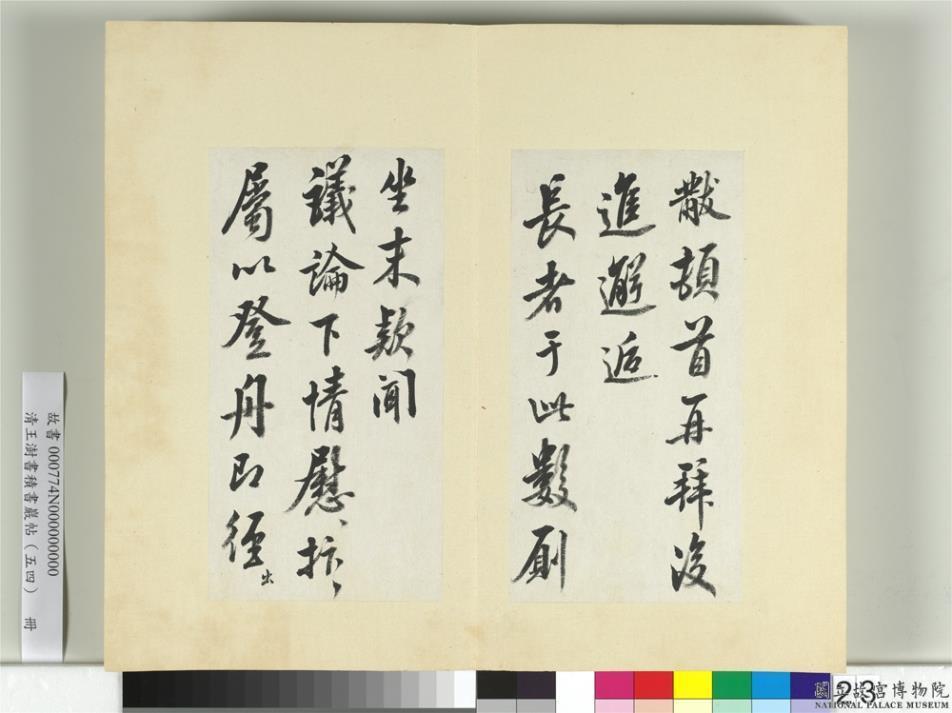 黻頓首再拜後
進邂逅
長者于此數厠
坐末欵聞
議論下情慰、抃、
屬以登舟即徑出
故書 000774N000000000
清王澍書積書巖帖(五四) 冊
23
國立故宮博物院
NATIONAL PALACE MUSEUM